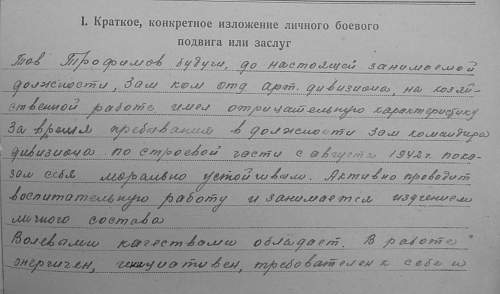 I. Краткое, конкретное изложение личного боевого
подвига или заслуг
Тов Трофимов будучи, до настоящей занимаемой
должности, Зам ком отд арт. дивизиона, на хозяй-
ственной работе имел отрицательную характеристику
За время пребывания в должности зам командира
дивизиона по строевой части с августа 1942 г. пока-
зал себя морально устойчивым. Активно проводит
воспитательную работу и занимается изучением
личного состава
Волевыми качествами обладает. В работе
энергичен, инициативен, требователен к себе и